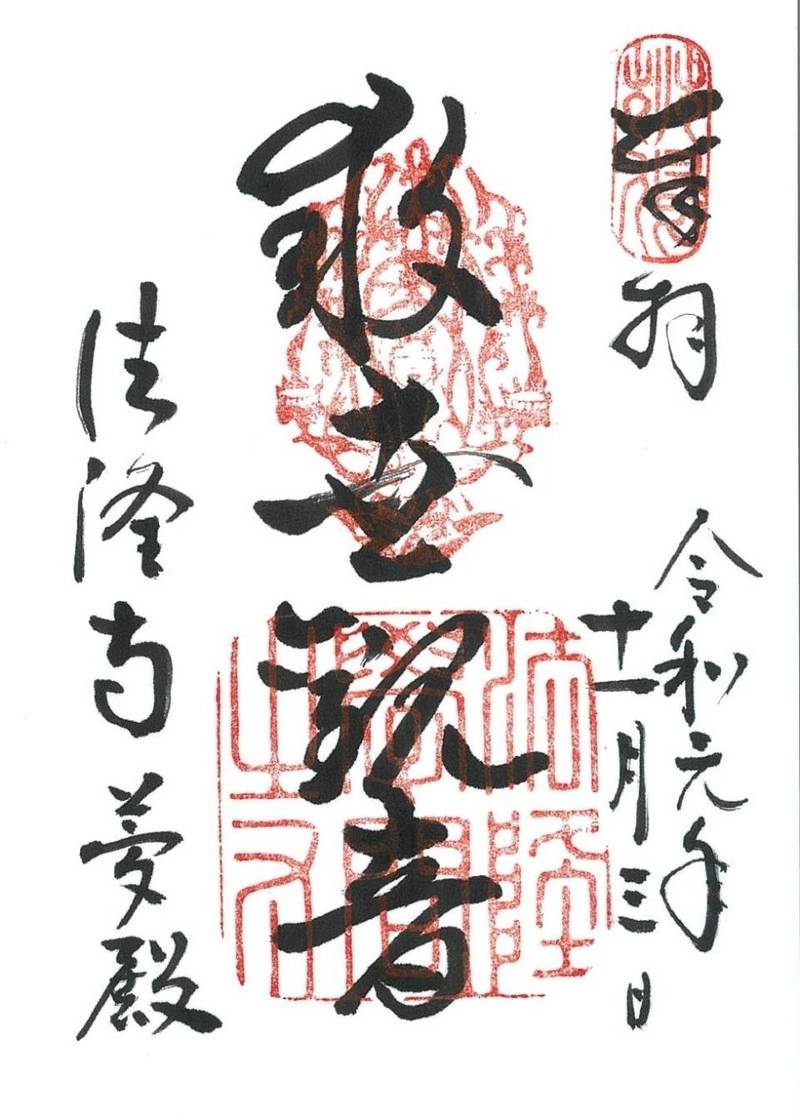 奉拝
令和元年
十一月三日
救世観音
法隆寺夢殿